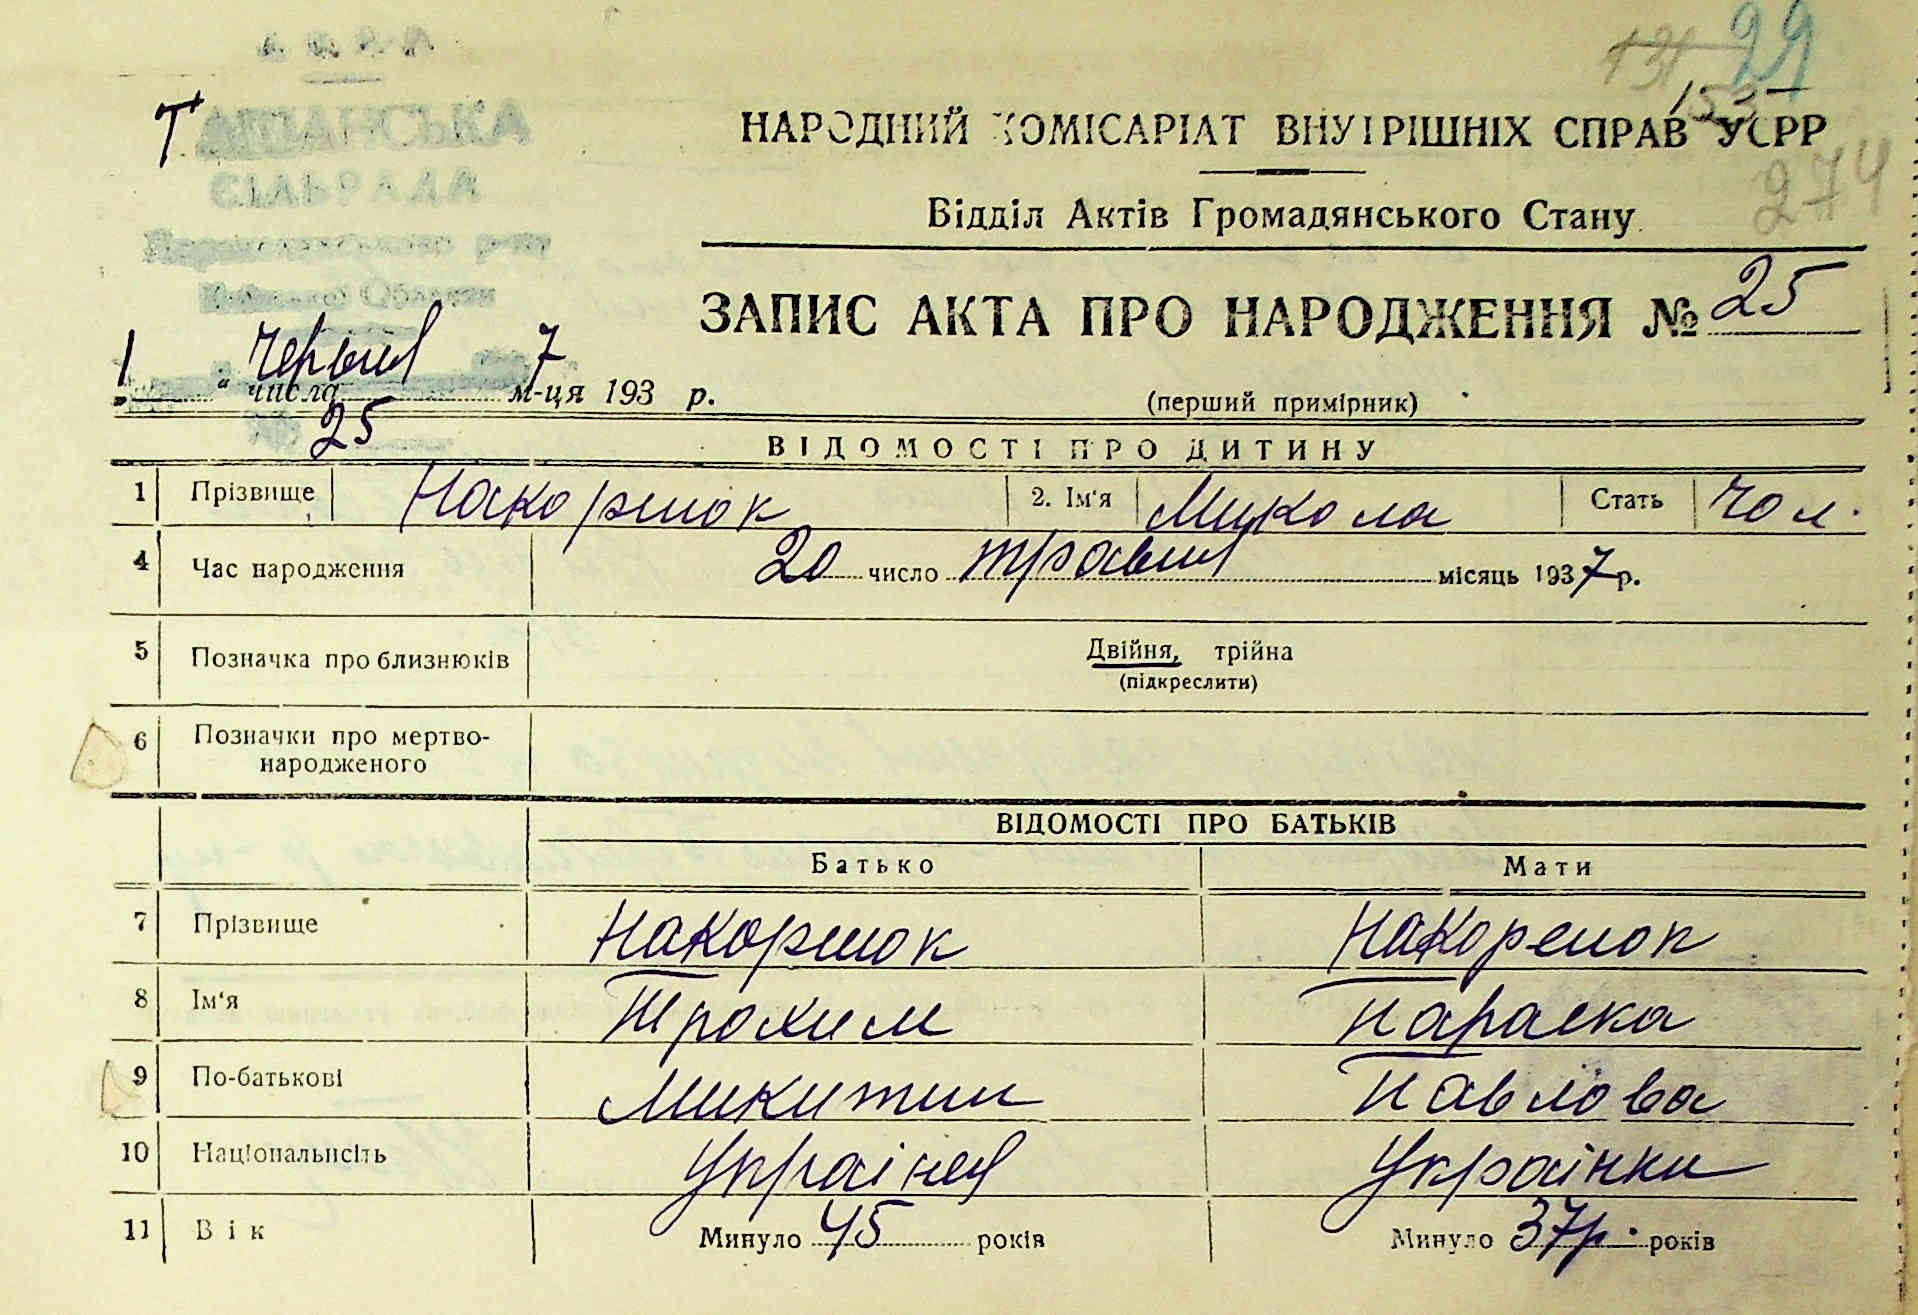 29
131
153
274
СІЛЬРАДА
Київської Области
НАРОДНИЙ КОМІСАРІАТ ВНУТРІШНІХ СПРАВ УСРР
Відділ Актів Громадянського Стану
ЗАПИС АКТА ПРО НАРОДЖЕННЯ № 25
1 " числа червня м-ця 193 7 р.
(перший примірник)
25
ВІДОМОСТІ ПРО ДИТИНУ
1 Прізвище Накоршок 2. Ім'я Микола Стать чол.
4 Час народження 20 число травня місяць 1937 р.
5 Позначка про близнюків Двійня, трійна
(підкреслити)
6 Позначки про мертво-
народженого
ВІДОМОСТІ ПРО БАТЬКІВ
Батько Мати
7 Прізвище Накоршок Накоренок
8 Ім'я Трохим Параска
9 По-батькові Микитин Павлова
10 Національність Українец Українки
11 Вік Минуло 45 років Минуло 37р. років